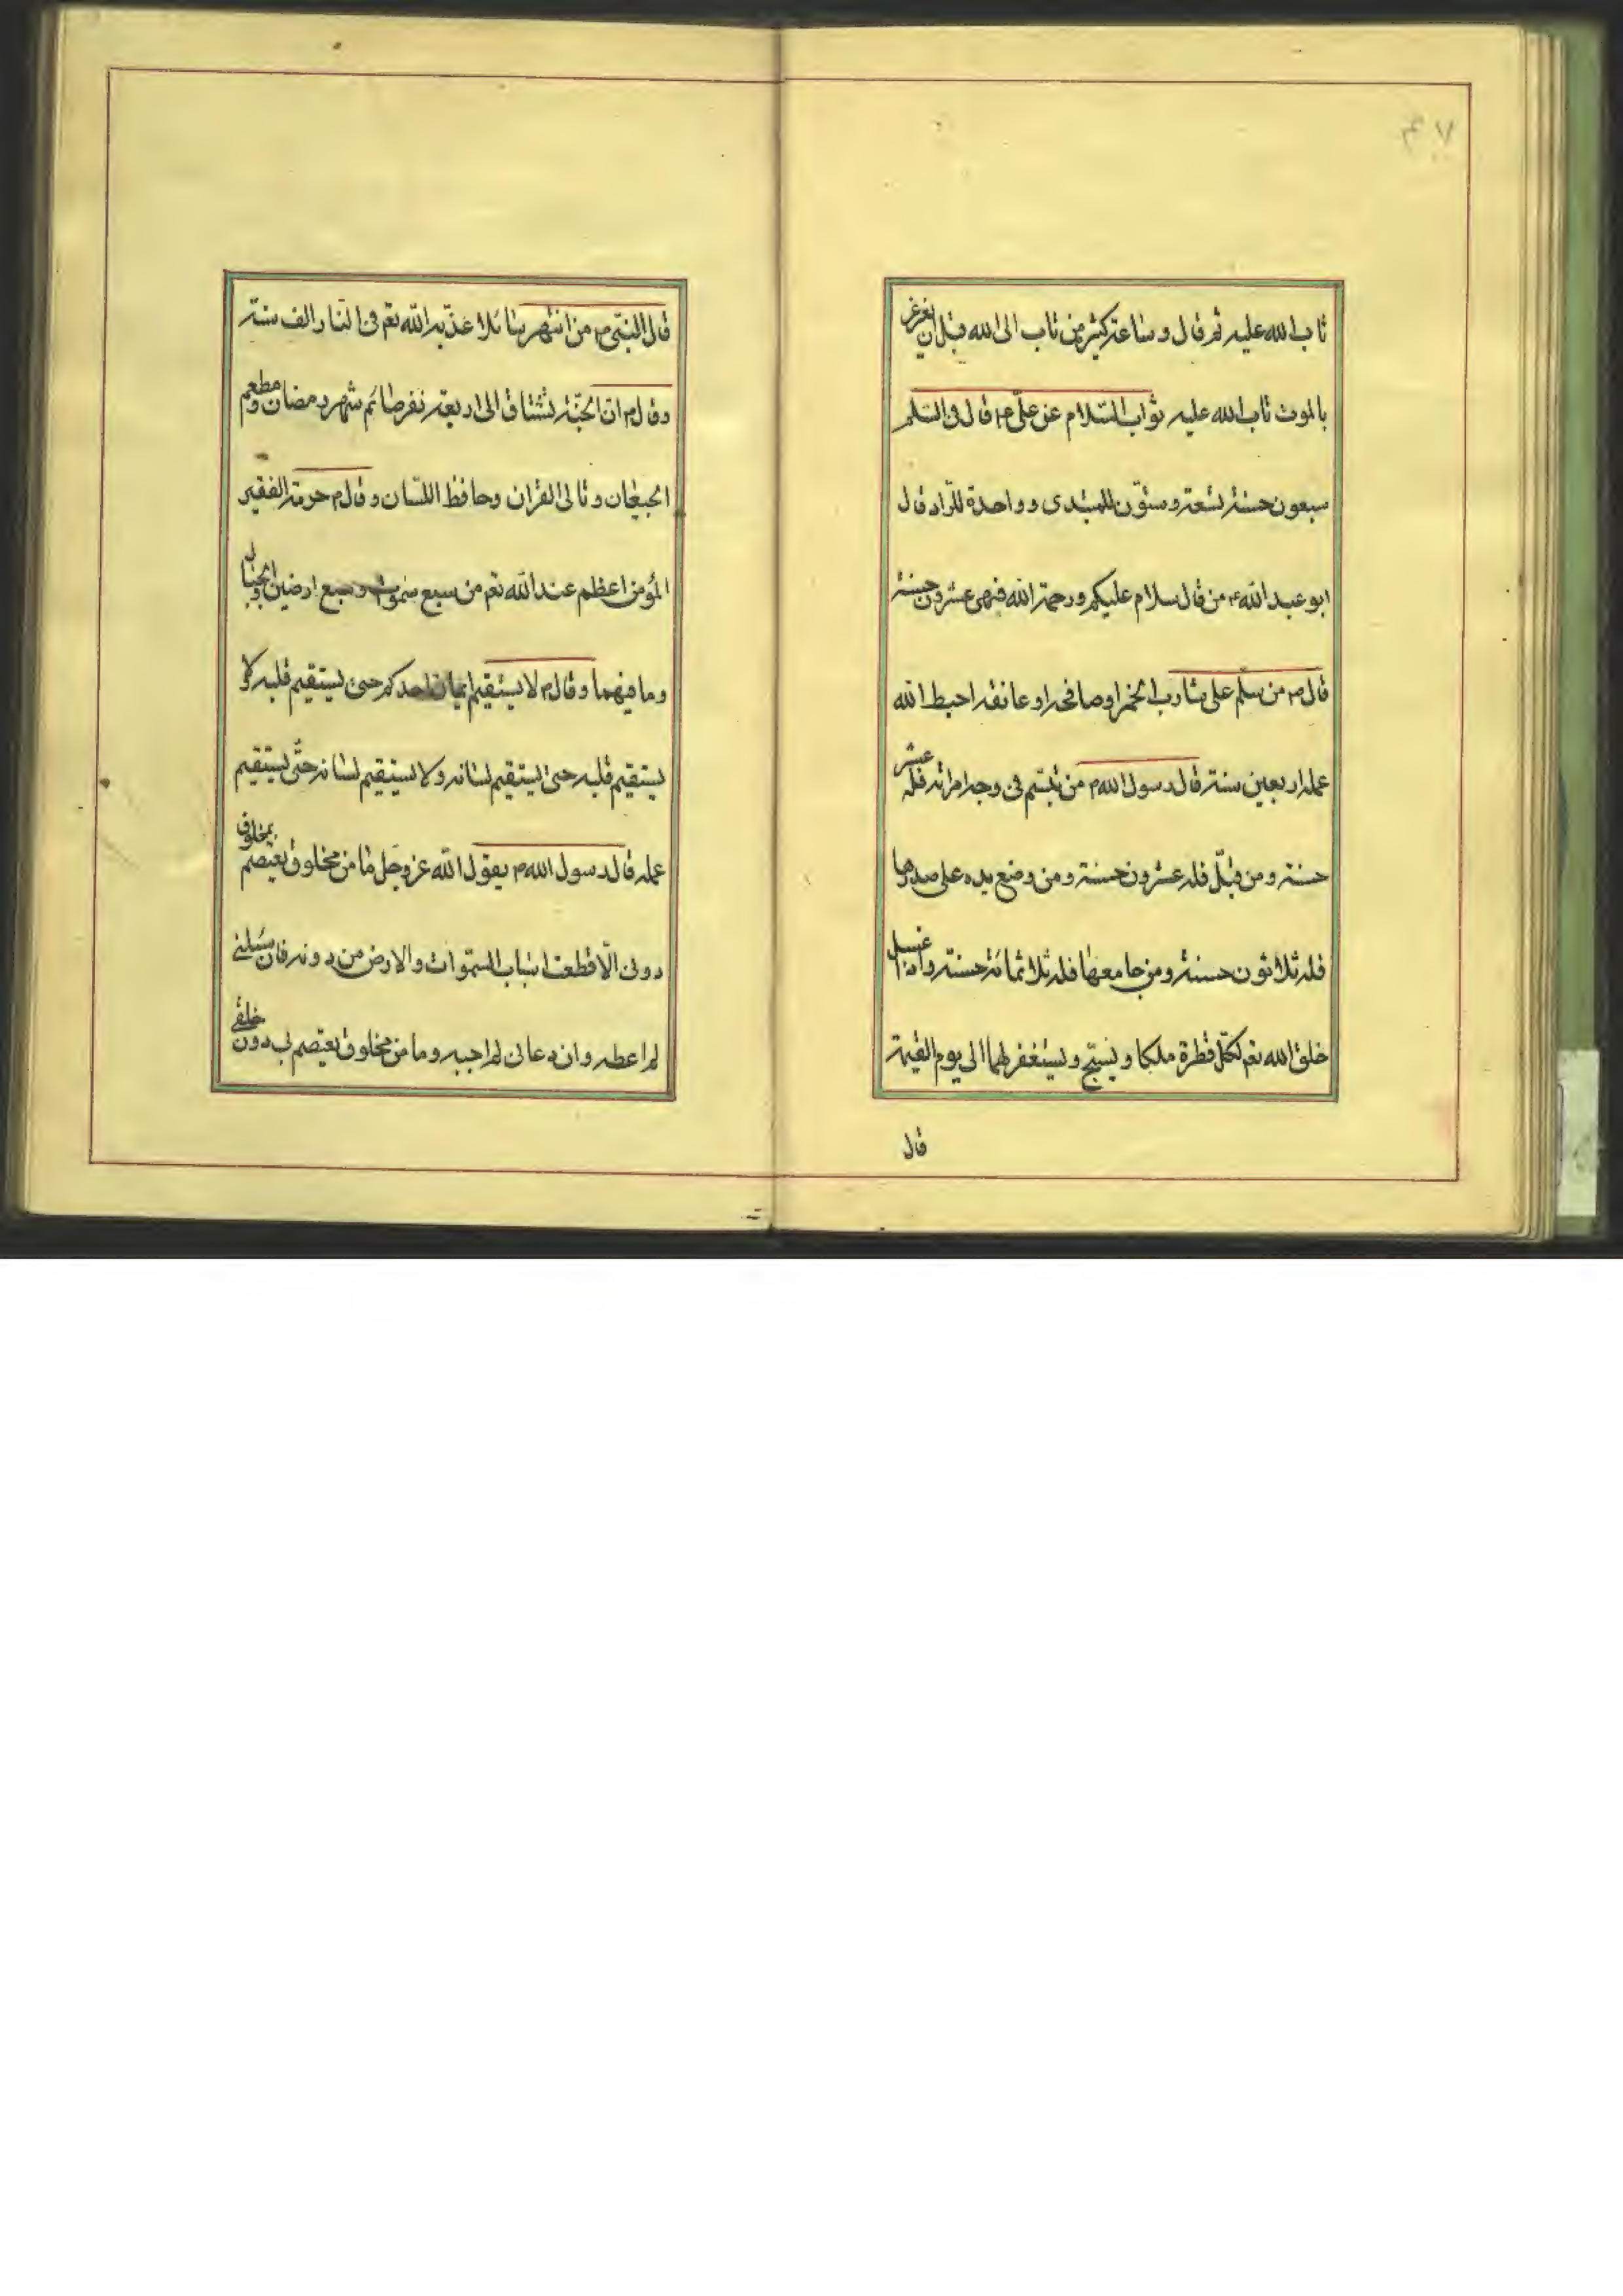 تاب الله عليه ثم قال و ساعة كثير من تاب الى الله قبل ان يغرغر
بالموت تاب الله عليه ثواب السّلام عن علىّ ع قال فى السّلم
سبعون حسنة تسعة و ستّون للمبتدى و واحدة للّراد قال
ابو عبد الله ع من قال سلام عليكم و رحمة الله فهى عشرون حسنة
قال ص من سلّم على شارب الخمر او صافحه او عانقه احبط الله
عمله اربعين سنة قال رسول الله ص من تبسّم فى وجه امراته فله عشر
حسنة و من قبّل فله عشرون حسنة و من وضع يده على صدرها
فله ثلاثون حسنة و من جامعها فله ثلاثمائة حسنة و اذا غسل
خلق الله تعم لكلّ قطرة ملكا و يسبّح و يستغفر لهما الى يوم القيمة
قال
قال النبىّ ص من انتهر سائلا عذّبه الله تعم فى النّار الف سنة
و قال ص انّ الجنّة تشتاق الى اربعة نفر صائم شهر رمضان و مطعم
الجيعان و تالى القران و حافظ اللّسان و قال ص حرمة الفقير
المؤمن اعظم عند الله تعم من سبع سموات و سبع ارضين و الجبال
و ما فيهما و قال ص لا يستقيم ايمان احدكم حتى يستقيم قلبه و لا
يستقيم قلبه حتى يستقيم لسانه و لا يستقيم لسانه حتّى يستقيم
عمله قال رسول الله ص يقول الله عز و جل ما من مخلوق يعتصم بمخلوق
دونى الّا قطعت اسباب السّموات و الارض من دونه فان سئلنى
لم اعطه و ان دعانى لم اجبه و ما من مخلوق يعتصم بى دون خلقى